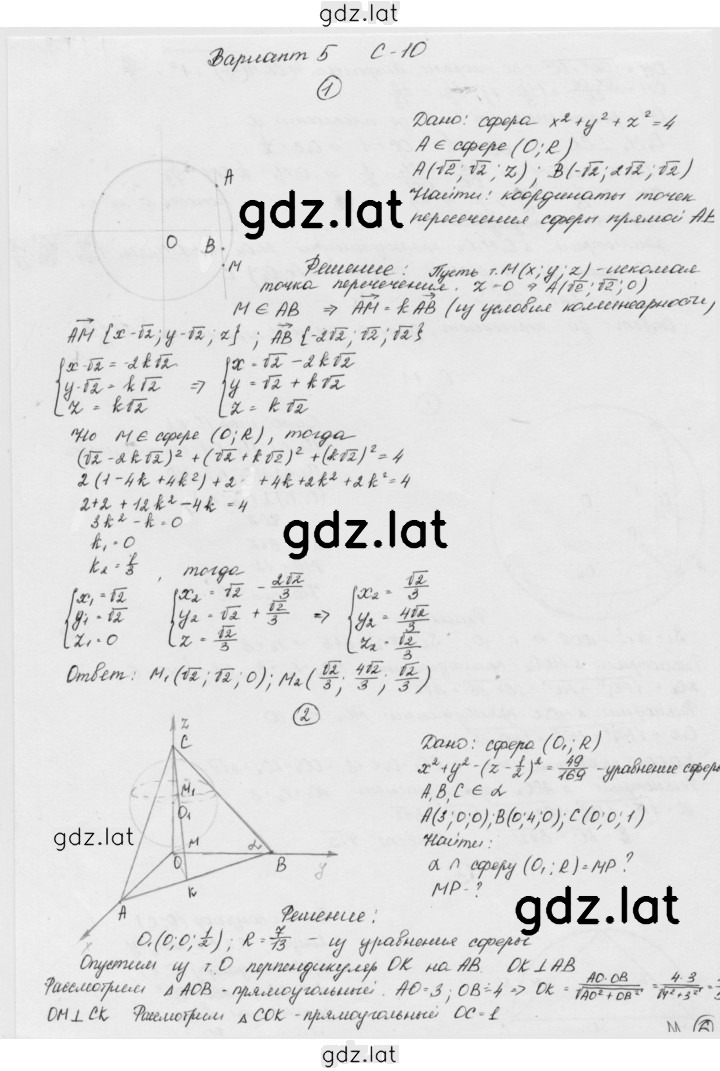 gdz.lat
Вариант 5 С-10
1
Дано: сфера x² + y² + z² = 4
A ∈ сфере (O; R)
A(√2; √2; z) ; B(-√2; 2√2; √2)
Найти: координаты точек
пересечения сферы прямой AB
A
O
B
M
gdz.lat
Решение: Пусть т. M(x; y; z) - искомая
точка пересечения. z=0 ⇒ A(√2; √2; 0)
M ∈ AB ⇒ AM = k AB (из условия коллинеарности)
AM {x-√2; y-√2; z} ; AB {-2√2; √2; √2}
{ x-√2 = -2k√2 { x = √2 - 2k√2
{ y-√2 = k√2 ⇒ { y = √2 + k√2
{ z = k√2 { z = k√2
Но M ∈ сфере (O; R), тогда
(√2 - 2k√2)² + (√2 + k√2)² + (k√2)² = 4
2(1-4k+4k²) + 2 + 4k + 2k² + 2k² = 4
2+2+12k²-4k = 4
3k² - k = 0
k₁ = 0
k₂ = 1/3, тогда
gdz.lat
{ x₁ = √2 { x₂ = √2 - 2√2/3 { x₂ = √2/3
{ y₁ = √2 { y₂ = √2 + √2/3 ⇒ { y₂ = 4√2/3
{ z₁ = 0 { z = √2/3 { z₂ = √2/3
Ответ: M₁(√2; √2; 0); M₂(√2/3; 4√2/3; √2/3)
2
z
C
M₁
O₁
M
O
α
B
y
K
A
x
gdz.lat
Дано: сфера (O₁; R)
x² + y² - (z - 1/2)² = 49/169 - уравнение сферы
A, B, C ∈ α
A(3; 0; 0); B(0; 4; 0); C(0; 0; 1)
Найти:
α ∩ сферу (O₁; R) = MP ?
MP - ?
gdz.lat
Решение:
O₁(0; 0; 1/2) ; R = 7/13 - из уравнения сферы
Опустим из т. O перпендикуляр OK на AB. OK ⊥ AB
Рассмотрим △AOB - прямоугольный. AO = 3 ; OB = 4 ⇒ OK = AO·OB/√(AO² + OB²) = 4·3/√(4² + 3²) =
OM ⊥ CK Рассмотрим △COK - прямоугольный OC = 1
M 2
gdz.lat